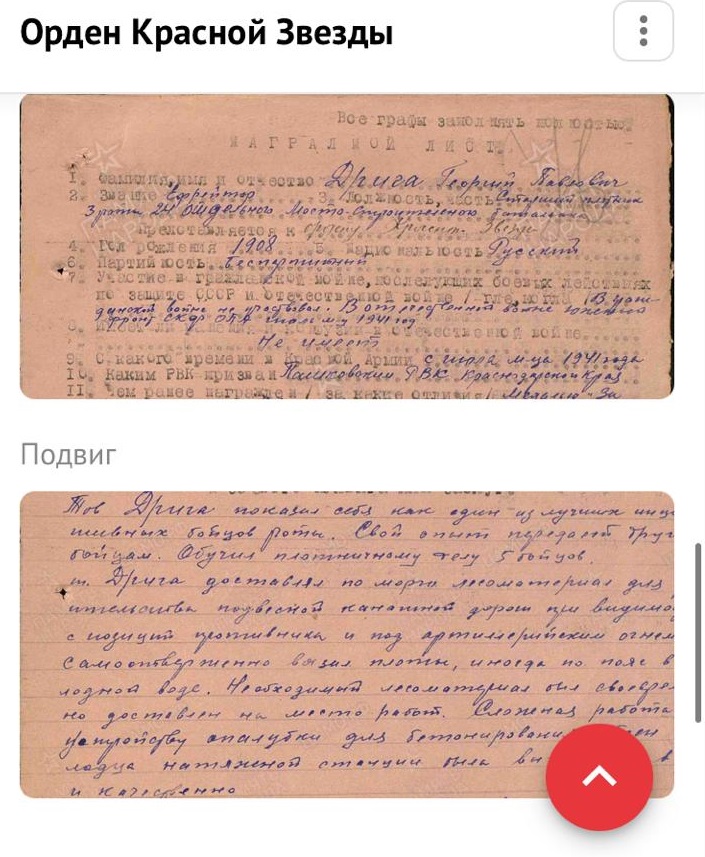 Орден Красной Звезды
Все графы заполнять полностью.
НАГРАДНОЙ ЛИСТ.
1. Фамилия, имя и отчество Дрига Георгий Павлович
2. Звание Ефрейтор 3. Должность, часть Старший плотник
3 роты 24 отдельного Мосто-строительного батальона
Представляется к ордену Красной Звезды
4. Год рождения 1908 5. Национальность Русский
6. Партийность беспартийный
7. Участие в гражданской войне, последующих боевых действиях
по защите СССР и отечественной войне / где, когда / В граж-
данской войне не участвовал. В отечественной войне южный
фронт СКФ 1941
8. Имеет ли ранения и контузии в отечественной войне
Не имеет
9. С какого времени в Красной Армии с м-ца 1941 года
10. Каким РВК призван Пашковским РВК Краснодарский Край
11. Чем ранее награжден / за какие отличия / Медалью "За
Подвиг
Тов Дрига показал себя как один из лучших иници
ативных бойцов роты. Свой опыт передает друг
бойцам. Обучил плотничному делу 5 бойцов.
т. Дрига доставлял по морю лесоматериал для
ительства подвесной канатной дороги при видимо
с позиций противника и под артиллерийским огнем
Самоотверженно вязал плоты, иногда по пояс в
лодной воде. Необходимый лесоматериал был своевре
но доставлен на место работ. Сложная работа
устройству опалубки для бетонирования
лодца натяжной станции была в
и качественно